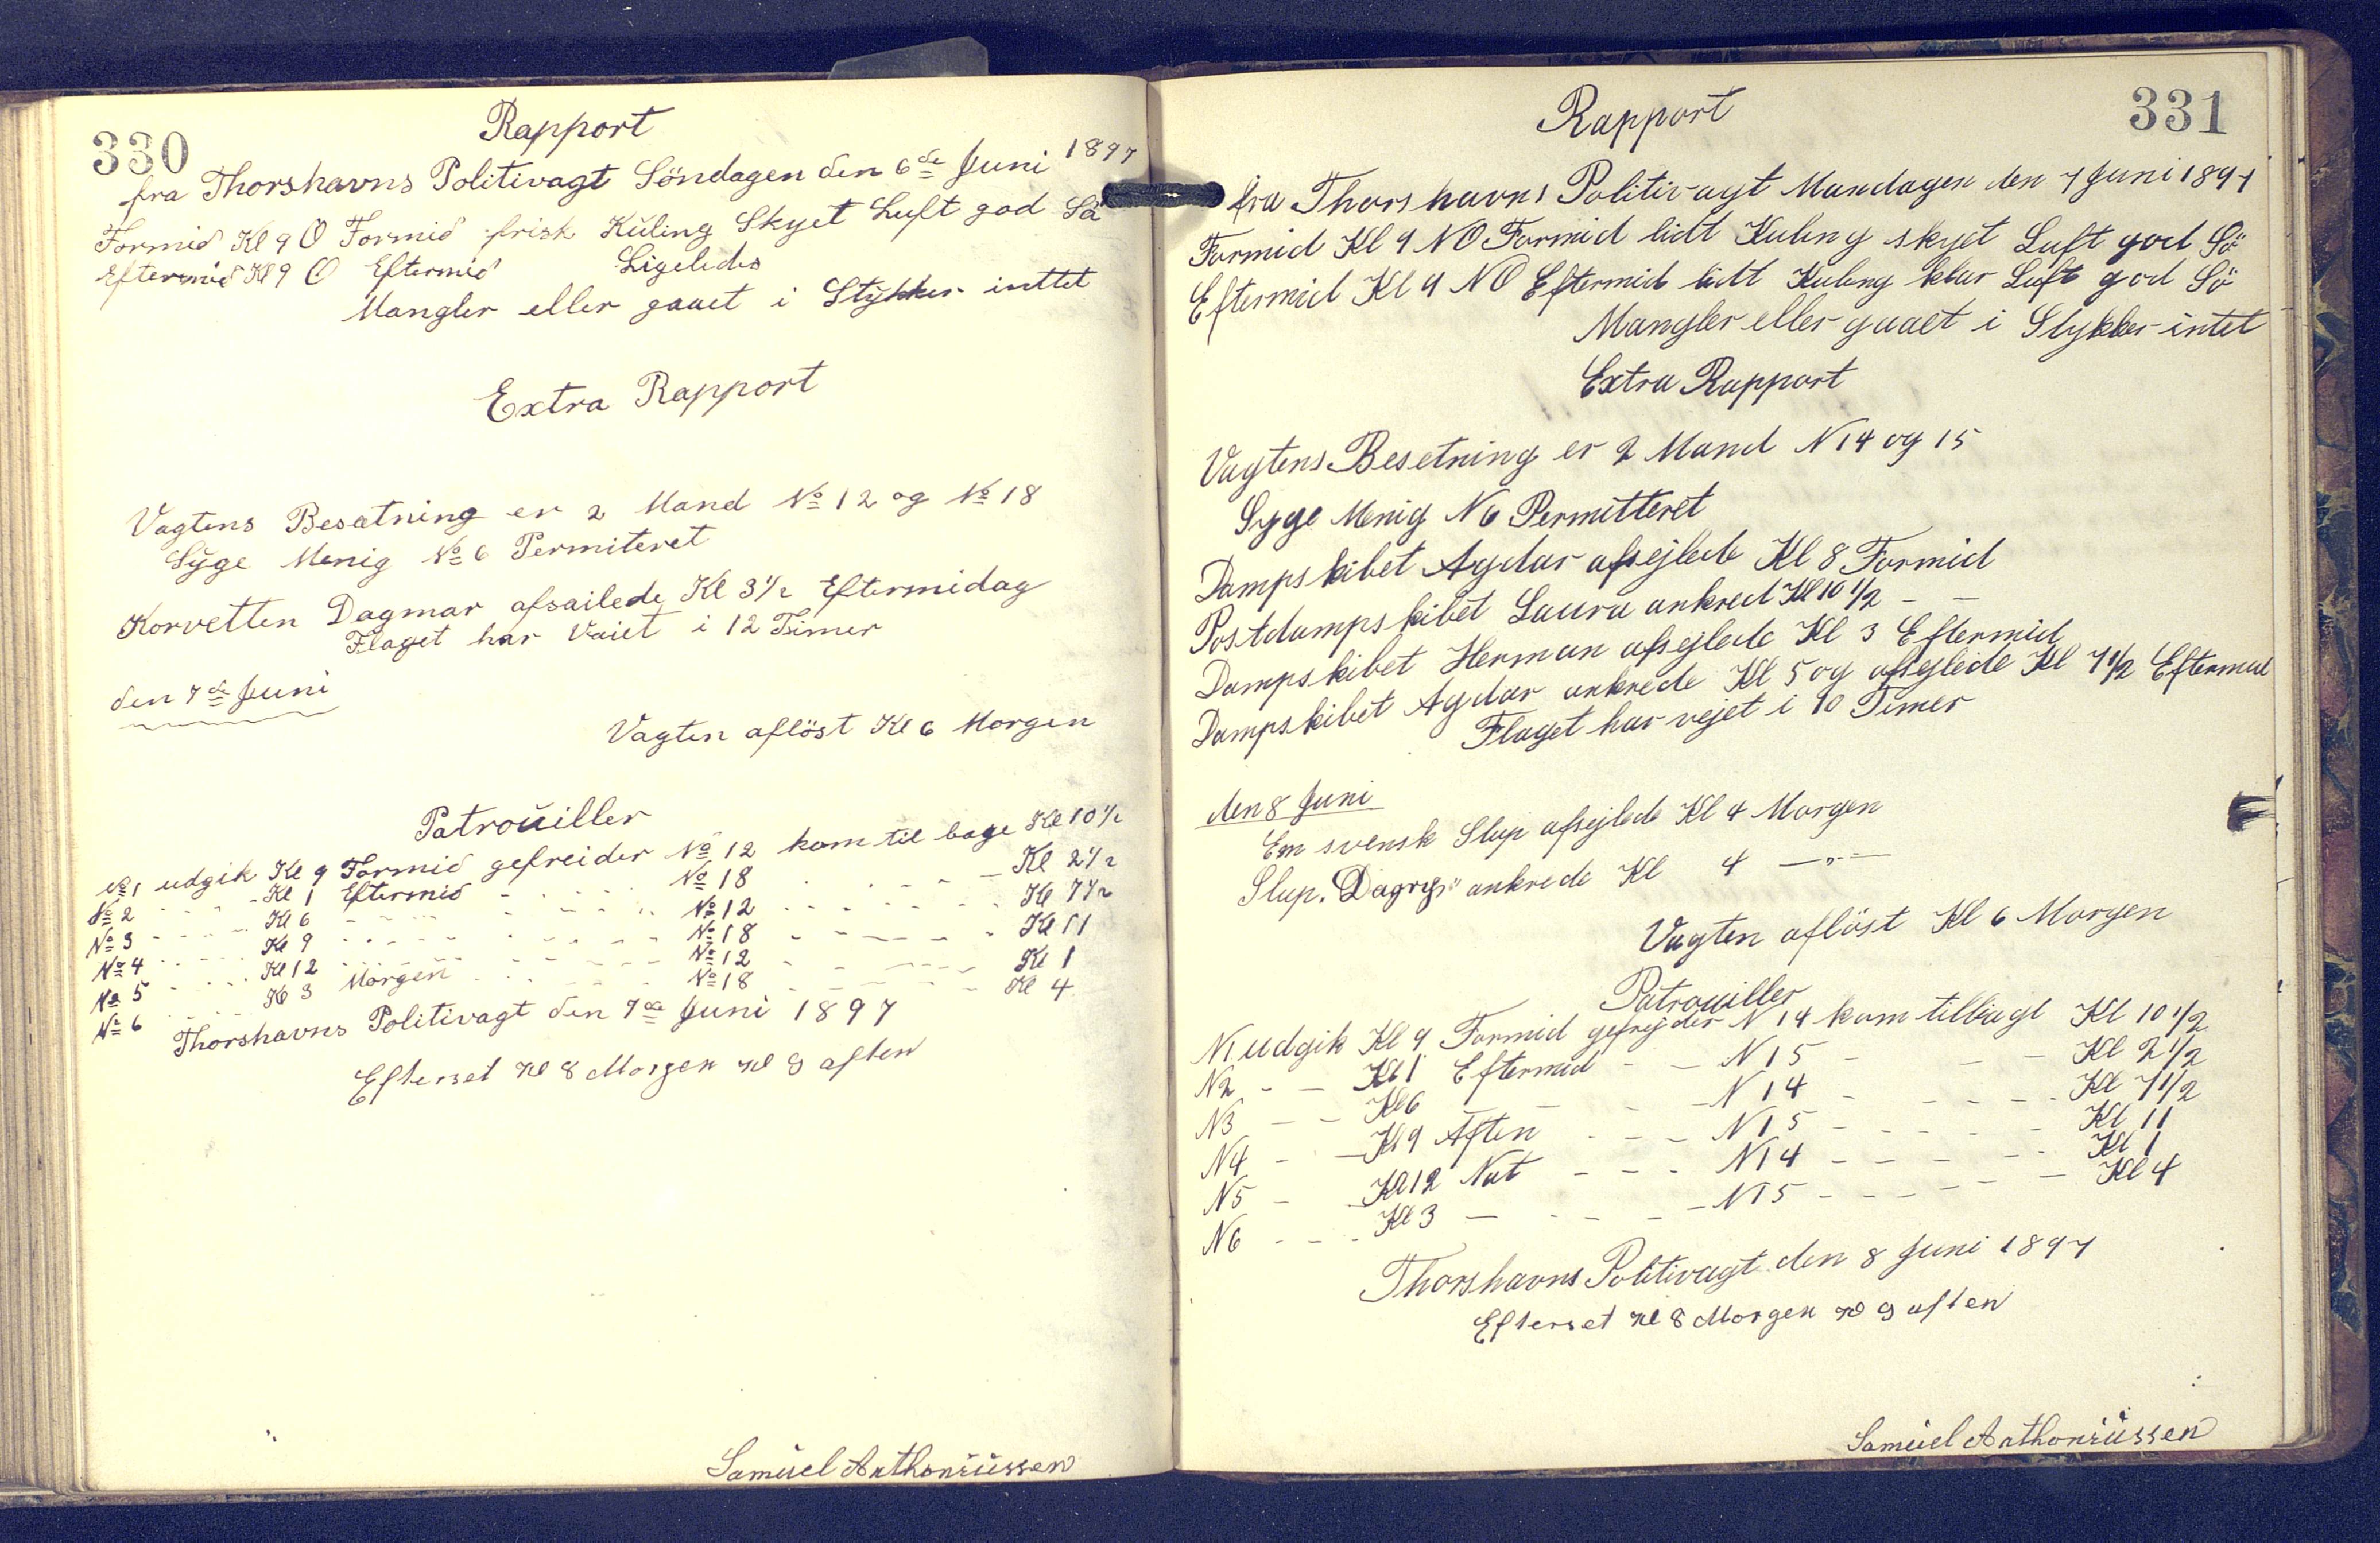 330
Rapport
fra Thorshavns Politivagt Söndagen den 6de Juni 1897
Formid Kl 9 O Formid frisk Kuling Skyet Luft god Sö
Eftermid Kl 9 O Eftermid Ligeledes
Mangler eller gaaet i Stykker inttet
Extra Rapport
Vagtens Besatning er 2 Mand No 12 og No 18
Syge Menig No 6 Permiteret
Korvetten Dagmar afsailede Kl 3 1/2 Eftermidag
Flaget har Vaiet i 12 Timer
den 7de Juni
Vagten aflöst Kl 6 Morgen
Patrouiller
No 1 udgik Kl 9 Formid gefreider No 12 kom til bage Kl 10 1/2
No 2 - - - - Kl 1 Eftermid - - - - No 18 - - - - Kl 2 1/2
No 3 - - - - Kl 6 - - - - No 12 - - - - Kl 7 1/2
No 4 - - - - Kl 9 - - - - No 18 - - - - Kl 11
No 5 - - - - Kl 12 - - - - No 12 - - - - Kl 1
No 6 - - - - Kl 3 Morgen - - - - No 18 - - - - Kl 4
Thorshavns Politivagt den 7de Juni 1897
Efterset Kl 8 Morgen Kl 9 aften
Samüel Anthoniüssen
331
Rapport
fra Thorshavns Politivagt Mandagen den 7 Juni 1897
Formid Kl 9 NO Formid lidt Kuling skyet Luft god Sö
Eftermid Kl 9 NO Eftermid lidt Kuling klar Luft god Sö
Mangler eller gaaet i Stykker intet
Extra Rapport
Vagtens Besetning er 2 Mand N 14 og 15
Syge Menig N 6 Permitteret
Dampskibet Agdar afsejlede Kl 8 Formid
Postdampskibet Laura ankred Kl 10 1/2 - -
Dampskibet Herman afsejlede Kl 3 Eftermid
Dampskibet Agdar ankrede Kl 5 og afsejlede Kl 7 1/2 Eftermid
Flaget har vejet i 10 Timer
den 8 Juni
Em svensk Slup afsejlede Kl 4 Morgen
Slup. "Dagry" ankrede Kl 4 —"—
Vagten aflöst Kl 6 Morgen
Patrouiller
N1 udgik Kl 9 Formid gefrejder N 14 kom tilbage Kl 10 1/2
N2 - - Kl 1 Eftermid - - N 15 - - - Kl 2 1/2
N3 - - Kl 6 - - - N 14 - - - - Kl 7 1/2
N4 - - Kl 9 Aften - - - N 15 - - - - Kl 11
N5 - - Kl 12 Nat - - - N 14 - - - - Kl 1
N6 - - - Kl 3 - - - - N 15 - - - - Kl 4
Thorshavns Politivagt den 8 Juni 1897
Efterset Kl 8 Morgen Kl 9 aften
Samüel Anthoniüssen